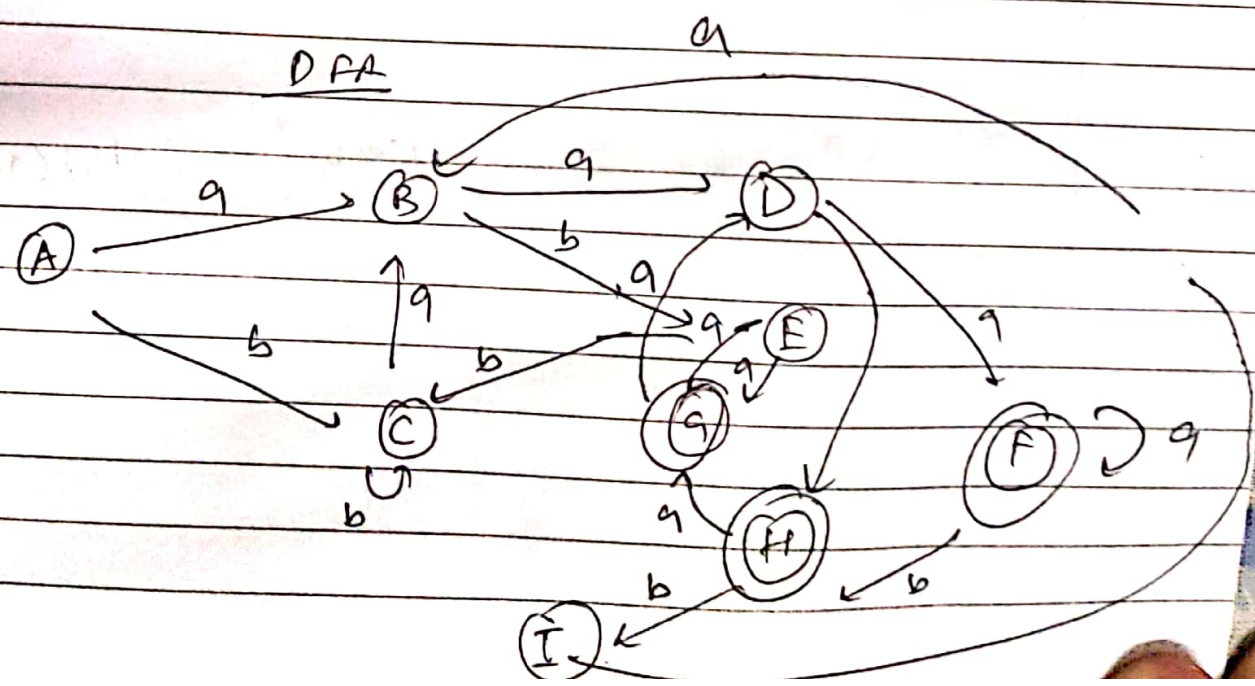 DFA
a
a
B
a
D
A
b
a
a
a
E
b
b
a
C
G
F
a
b
a
H
b
b
I